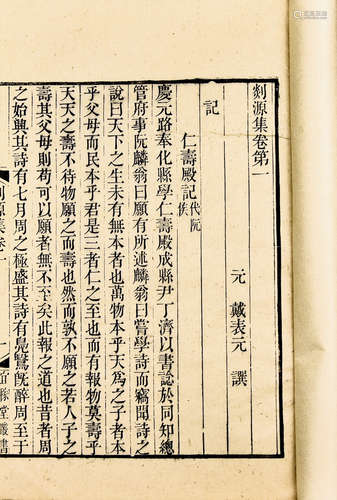 剡源集卷第一
元 戴表元 譔
記
仁壽殿記代阮侯
慶元路奉化縣學仁壽殿成縣尹丁濟以書諗於同知總
管府事阮麟翁曰願有所述麟翁曰嘗學詩而竊聞詩之
說曰天下之生未有無本者也萬物本乎天為之子者本
乎父母而民本乎君是三者仁之至也而有報物莫壽乎
天天之壽不待物願之而壽也然而孰不願之若人子之
壽其父母則苟可以願者無不至矣此報之道也昔者周
之始興其詩有七月周之極盛其詩有鳧鷖旣醉周至于
剡源集卷一
一
堂叢書